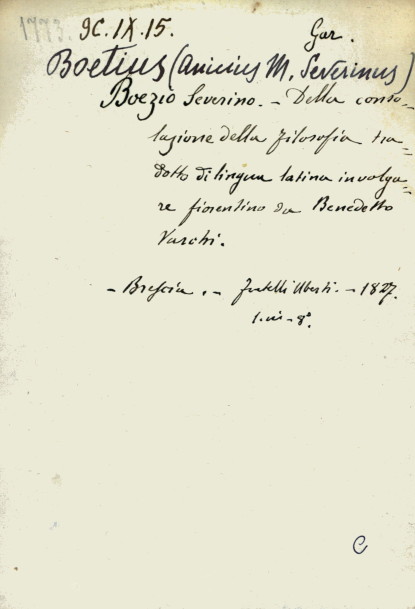 1773. 9C.IX.15. Gar.
Boetius (Anicius M. Severinus)
Boezio Severino. - Della conso=
lazione della filosofia tra=
dotto di lingua latina in volga=
re fiorentino da Benedetto
Varchi.
- Brescia. - fratelli Uberti. - 1827.
1. in - 8°.
C